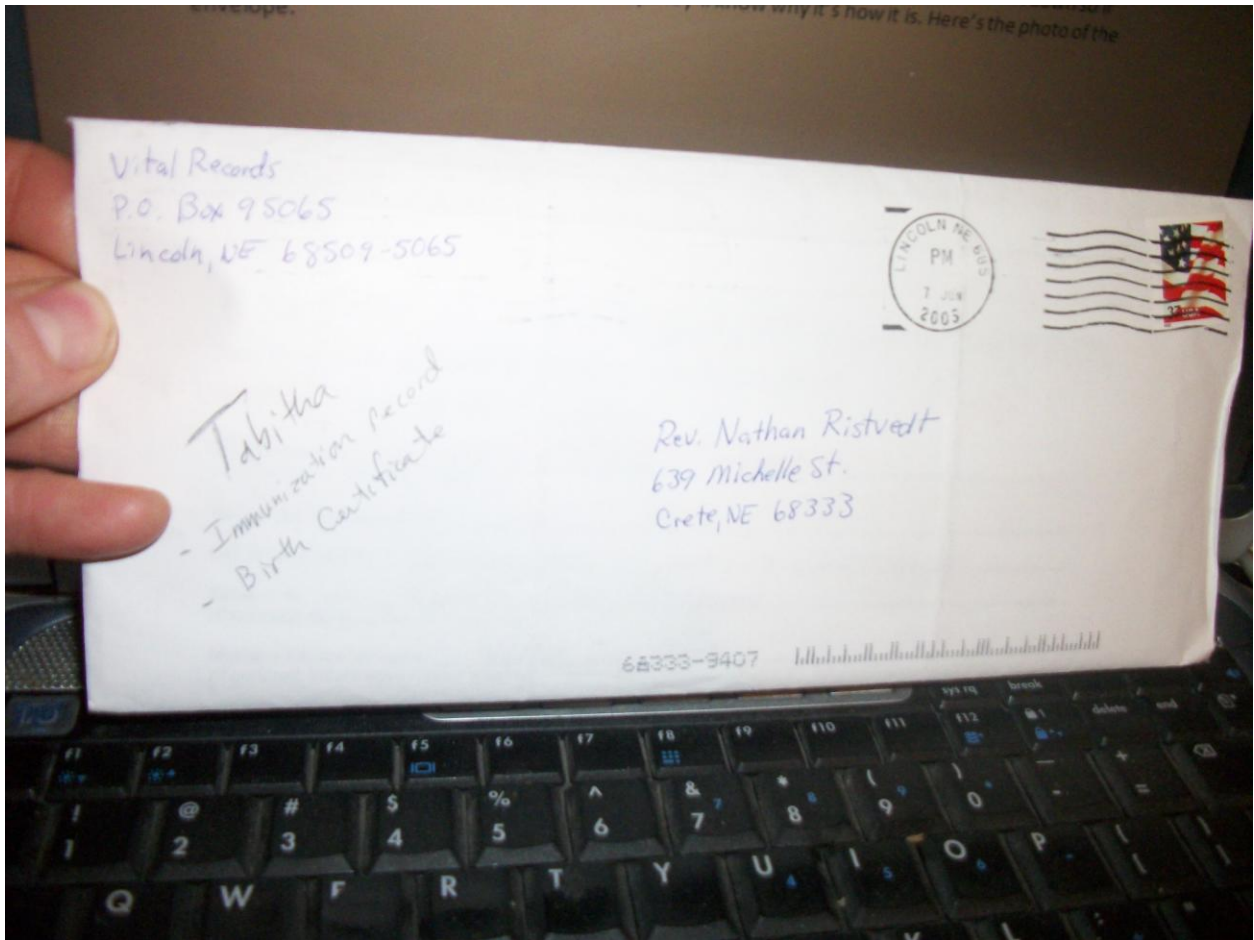 envelope.
know why it's how it is. Here's the photo of the
Vital Records
P.O. Box 95065
Lincoln, NE 68509-5065
LINCOLN NE 605
PM
7 JUN
2005
Tabitha
- Immunization record
- Birth Certificate
Rev. Nathan Ristvedt
639 Michelle St.
Crete, NE 68333
68333-9407
sys rq break
f1 f2 f3 f4 f5 f6 f7 f8 f9 f10 f11 f12 delete end
! @ # $ % ^ & * ( ) — +
1 2 3 4 5 6 7 7 8 8 9 9 0 - =
Q W R T Y U 4 I 5 O 6 P